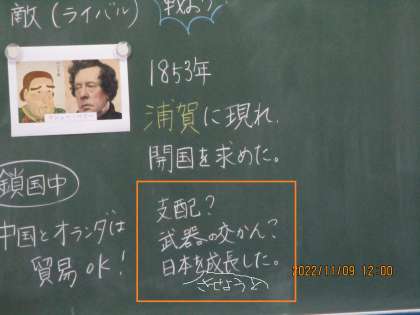 敵(ライバル) 戦おう?
1853年
浦賀に現れ、
開国を求めた。
鎖国中
中国とオランダは
貿易OK!
支配?
武器の交かん?
日本を成長した。
させようと
2022/11/09 12:00